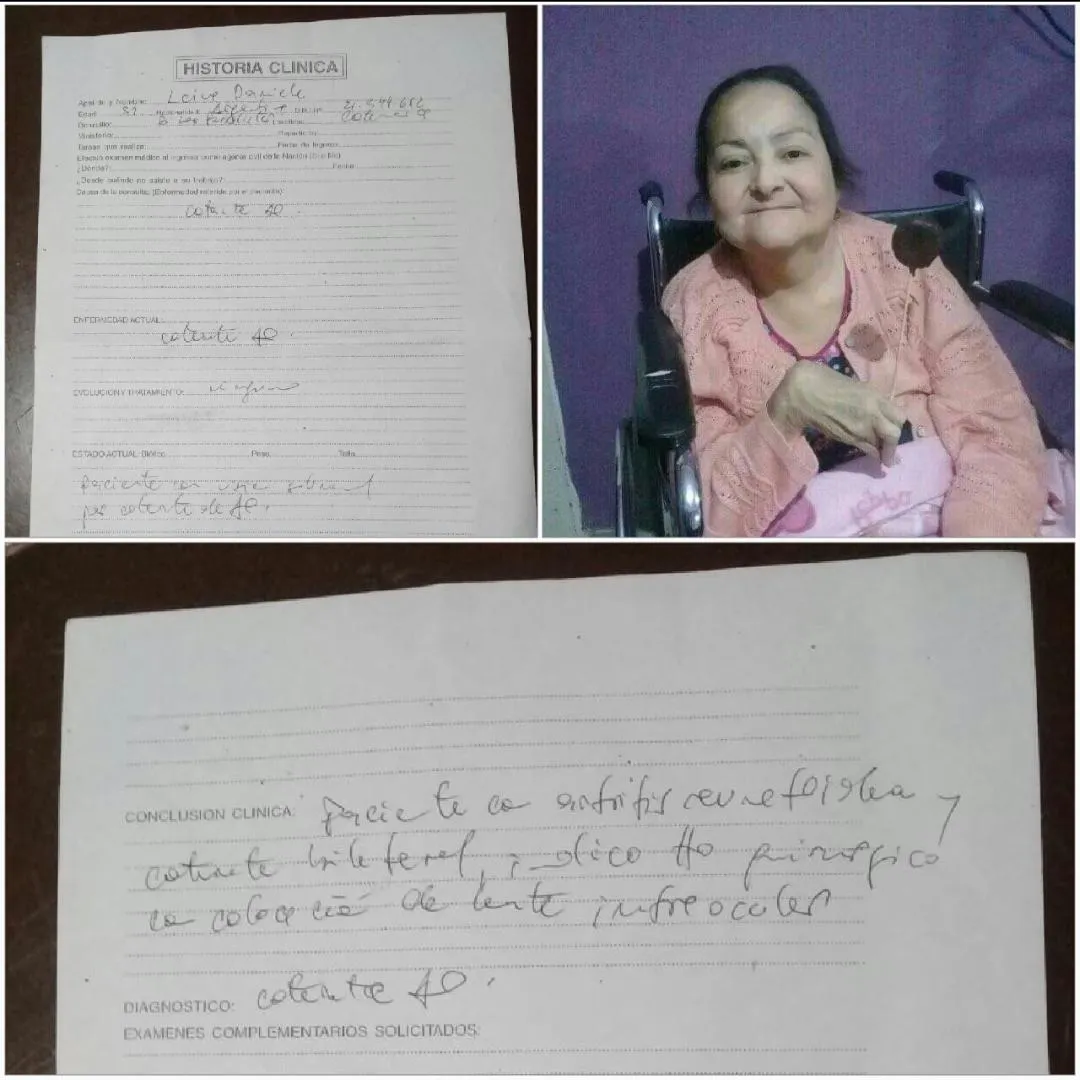 HISTORIA CLINICA
Apellido y Nombre: Leiva Daniela
Edad:
Domicilio:
Ministerio:
Tareas que realiza: Fecha de Ingreso:
Efectuó examen médico al ingreso como agente civil de la Nación (Si o No)
¿Dónde?: Fecha:
¿Desde cuándo no asiste a su trabajo?:
Causa de la consulta: (Enfermedad referida por el paciente):
catarata AO.
ENFERMEDAD ACTUAL:
catarata AO.
EVOLUCION Y TRATAMIENTO:
ESTADO ACTUAL: Biótipo Peso: Talla:
paciente con
por catarata de AO.
CONCLUSION CLINICA: Paciente con artritis reumatoidea y
catarata bilateral, indico tto quirurgico
con colocación de lente intraocular
DIAGNOSTICO: catarata AO.
EXAMENES COMPLEMENTARIOS SOLICITADOS: